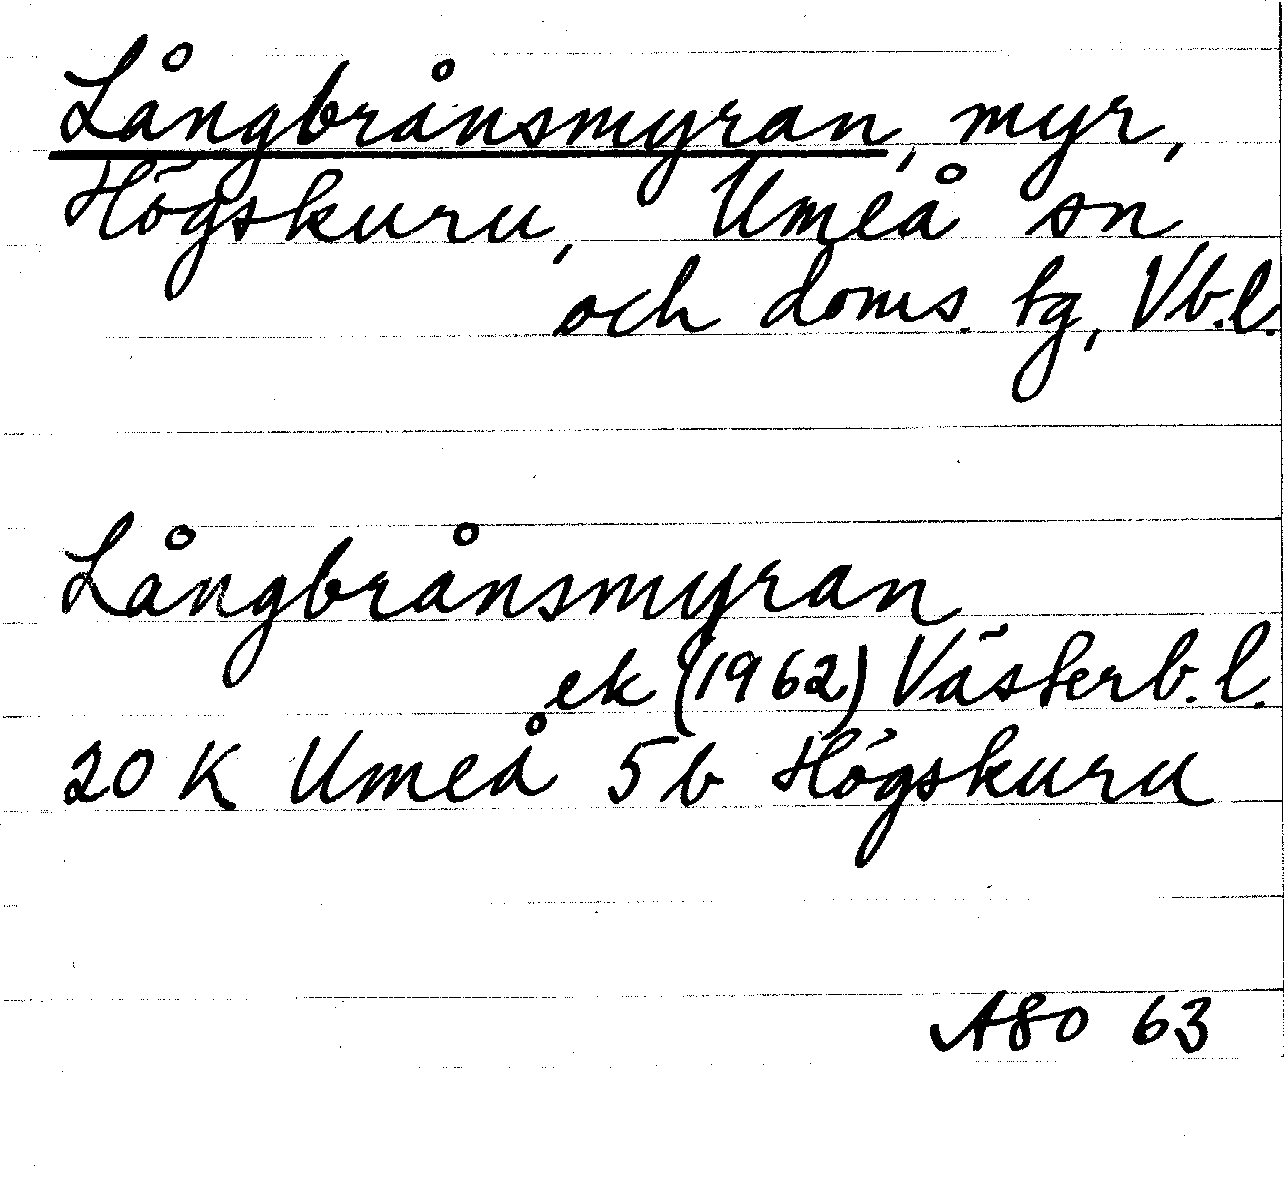 Långbrånsmyran, myr,
Högskuru, Umeå sn
och doms. tg, Vb.l.
Långbrånsmyran
ek (1962) Västerb. l.
20 K Umeå 5b Högskuru
ASO 63